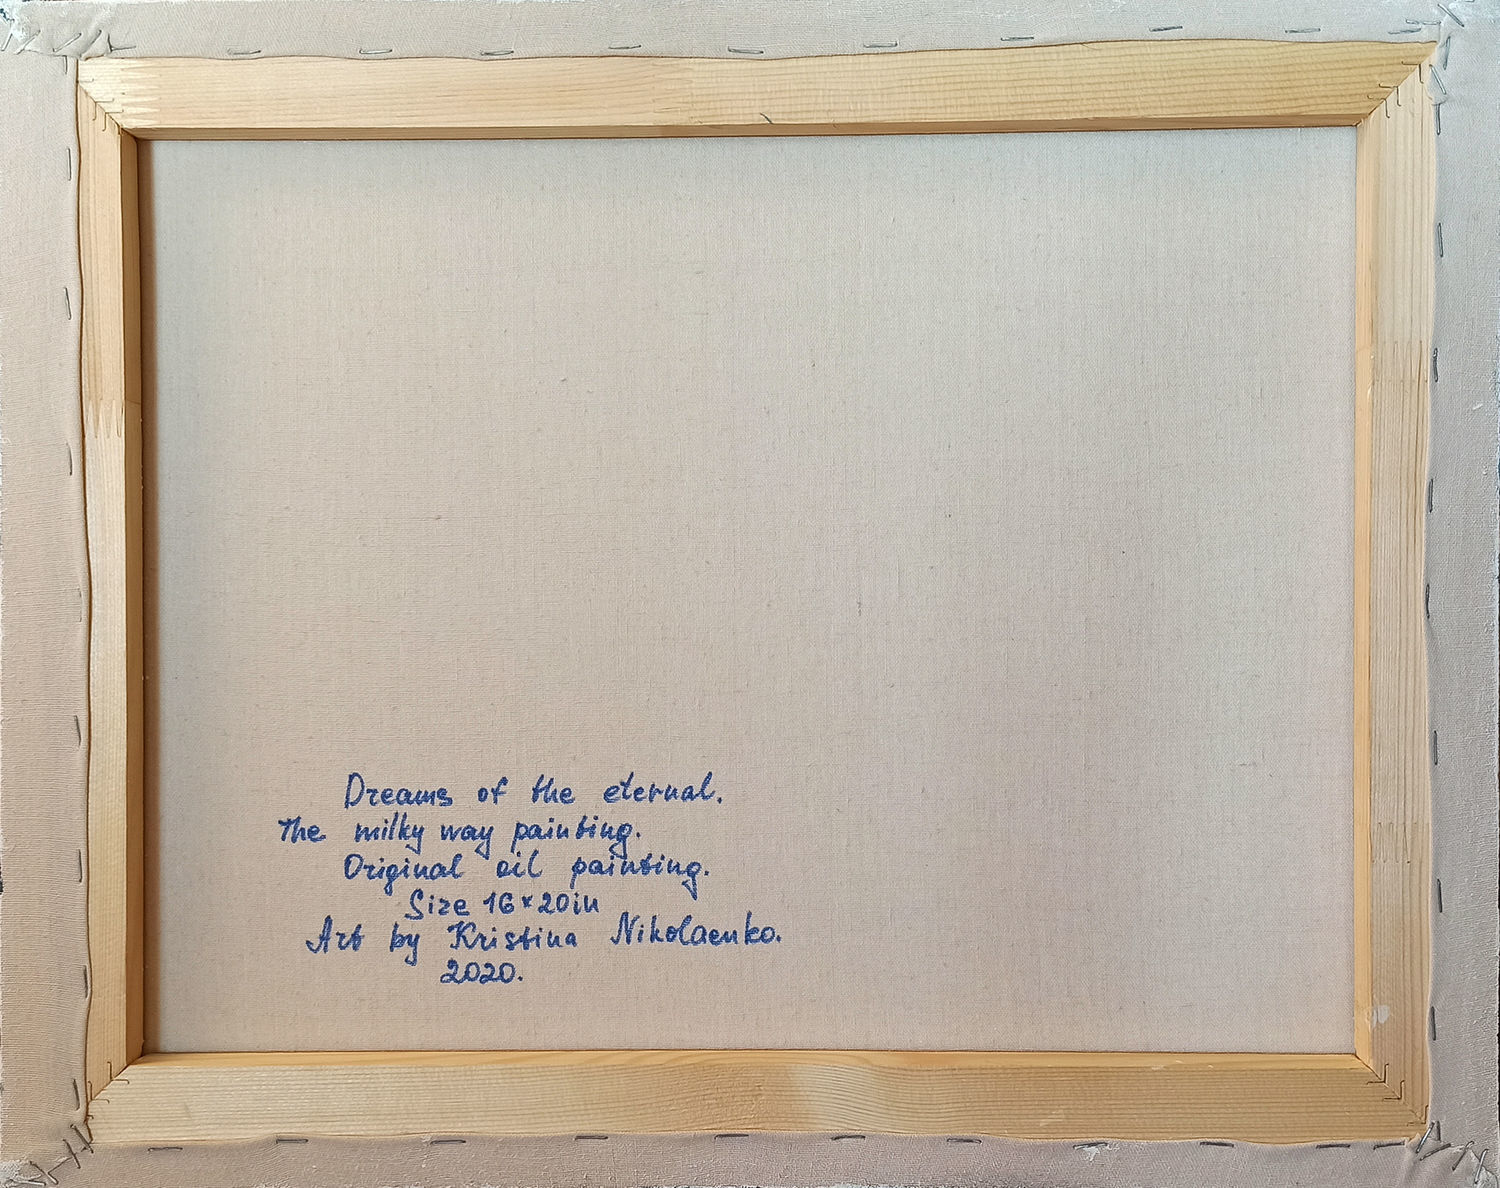 Dreams of the eternal.
The milky way painting.
Original oil painting.
Size 16×20in
Art by Kristina Nikolaenko.
2020.